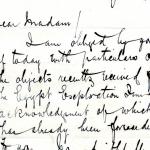 ear Madam/
I am obliged by yo
f today with particulars o
he objects recently received f
he Egypt Exploration Fun
acknowledgment of which
has already been forwarded